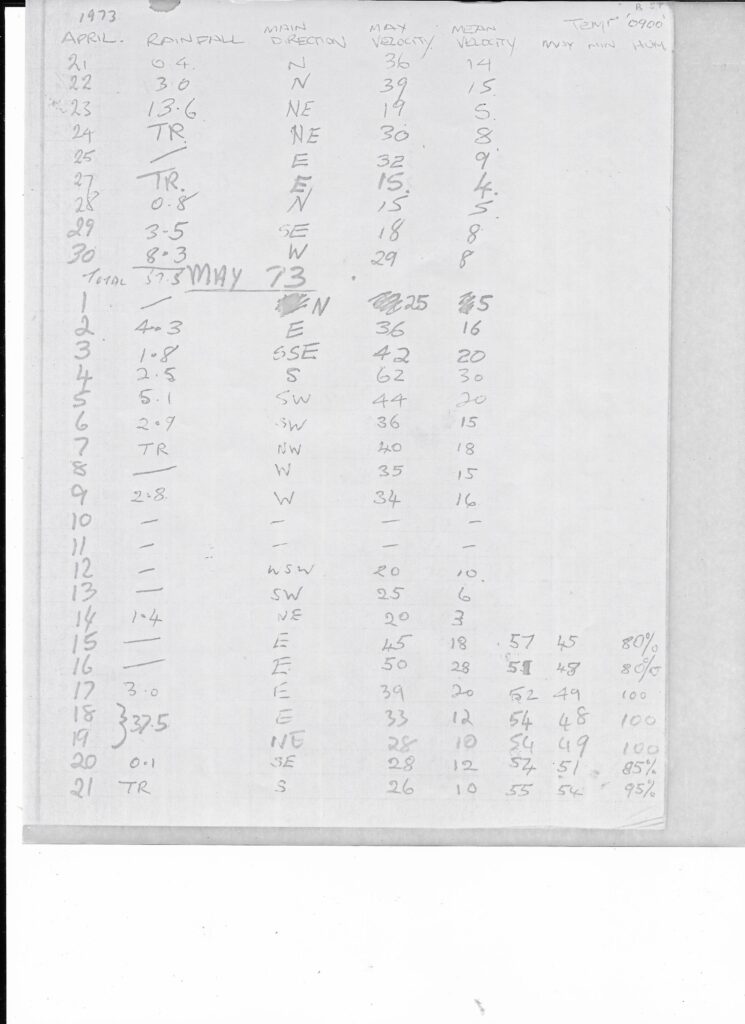 1973
MAIN MAX MEAN TEMP '0900'
APRIL. RAINFALL DIRECTION VELOCITY VELOCITY MAX MIN HUM
21 0.4. N 36 14
22 3.0 N 39 15.
23 13.6 NE 19 5.
24 TR. NE 30 8
25 — E 32 9
27 TR. E, 15. 4.
28 0.8 N 15 5.
29 3.5 SE 18 8
30 8.3 W 29 8
TOTAL MAY 73
1 — N 25 5
2 4.3 E 36 16
3 1.8 SSE 42 20
4 2.5 S 62 30
5 5.1 SW 44 20
6 2.9 SW 36 15
7 TR NW 40 18
8 — W 35 15
9 2.8. W 34 16
10 — — — —
11 — — — —
12 — WSW 20 10.
13 — SW 25 6
14 1.4 NE 20 3
15 — E 45 18 57 45 80%
16 — E 50 28 51 48 80%
17 3.0 E 39 20 52 49 100
18 } 37.5 E 33 12 54 48 100
19 NE 28 10 54 49 100
20 0.1 SE 28 12 54 51 85%
21 TR S 26 10 55 54 95%